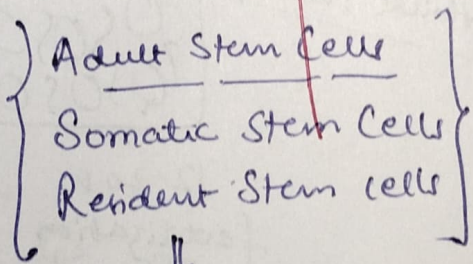 Adult Stem Cells
Somatic Stem Cells
Resident Stem cells